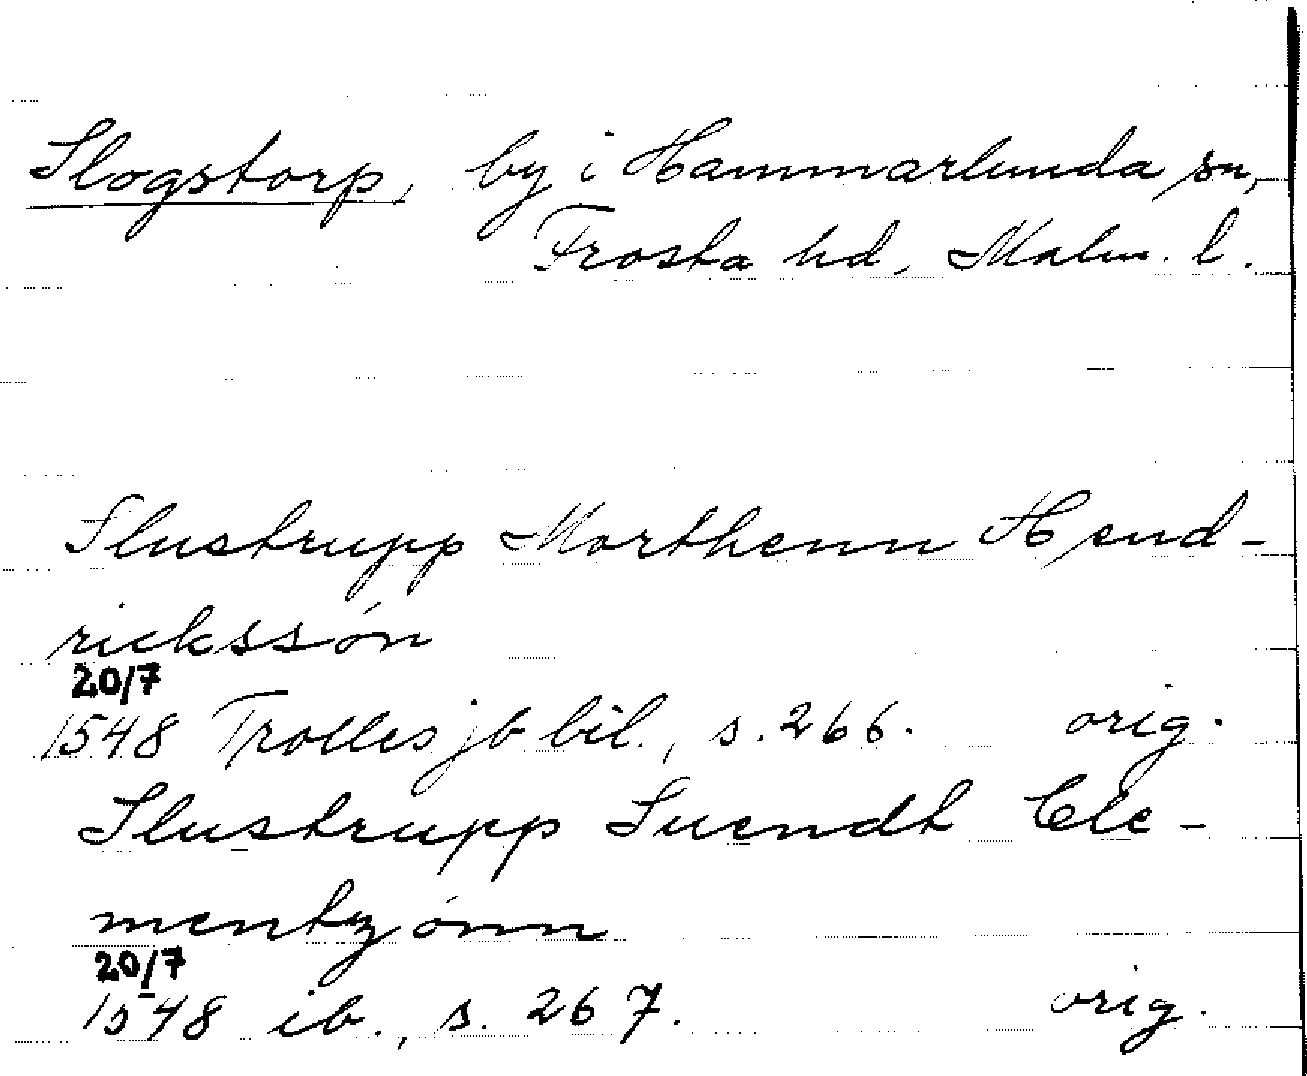 Slogstorp, by i Hammarlunda sn,
Frosta hd, Malm. l.
Slustrupp Morthenn Hend-
rickssón
20/7
1548 Trolles jb bil., s. 266. orig.
Slustrupp Suendt Cle-
mentzónn
20/7
1548 ib., s. 267. orig.